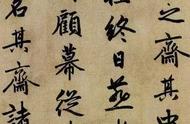 之齋其中
終日
顧幕從
名其齋諸